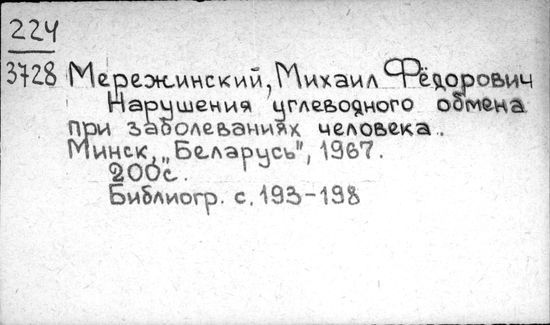 224
3728 Мережинский, Михаил Фёдорович
Нарушения углеводного обмена
при заболеваниях человека.
Минск, „Беларусь", 1967.
200с.
Библиогр. с. 193-198